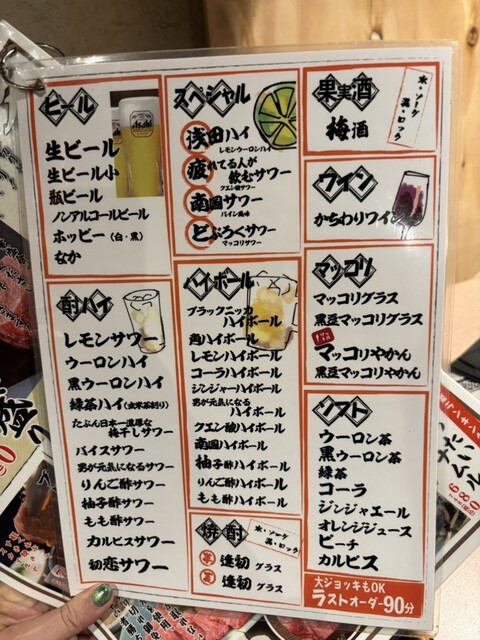 ビール
Asahi
生ビール
生ビール小
瓶ビール
ノンアルコールビール
ホッピー(白・黒)
なか
酎ハイ
レモンサワー
ウーロンハイ
黒ウーロンハイ
緑茶ハイ(玄米茶割り)
たぶん日本一濃厚な
梅干しサワー
バイスサワー
男が元気になるサワー
りんご酢サワー
柚子酢サワー
もも酢サワー
カルピスサワー
初恋サワー
スペシャル
浅田ハイ
レモンウーロンハイ
疲れてる人が
飲むサワー
クエン酸サワー
南国サワー
パイン風味
どぶろくサワー
マッコリサワー
ハイボール
ブラックニッカ
ハイボール
角ハイボール
レモンハイボール
コーラハイボール
ジンジャーハイボール
男が元気になる
ハイボール
クエン酸ハイボール
南国ハイボール
柚子酢ハイボール
りんご酢ハイボール
もも酢ハイボール
焼酎
水・ソーダ
湯・ロック
芋 逢初 グラス
麦 逢初 グラス
果実酒
水・ソーダ
湯・ロック
梅酒
ワイン
かちわりワイン
マッコリ
マッコリグラス
黒豆マッコリグラス
マッコリやかん
黒豆マッコリやかん
ソフト
ウーロン茶
黒ウーロン茶
緑茶
コーラ
ジンジャエール
オレンジジュース
ピーチ
カルピス
大ジョッキもOK
ラストオーダー90分